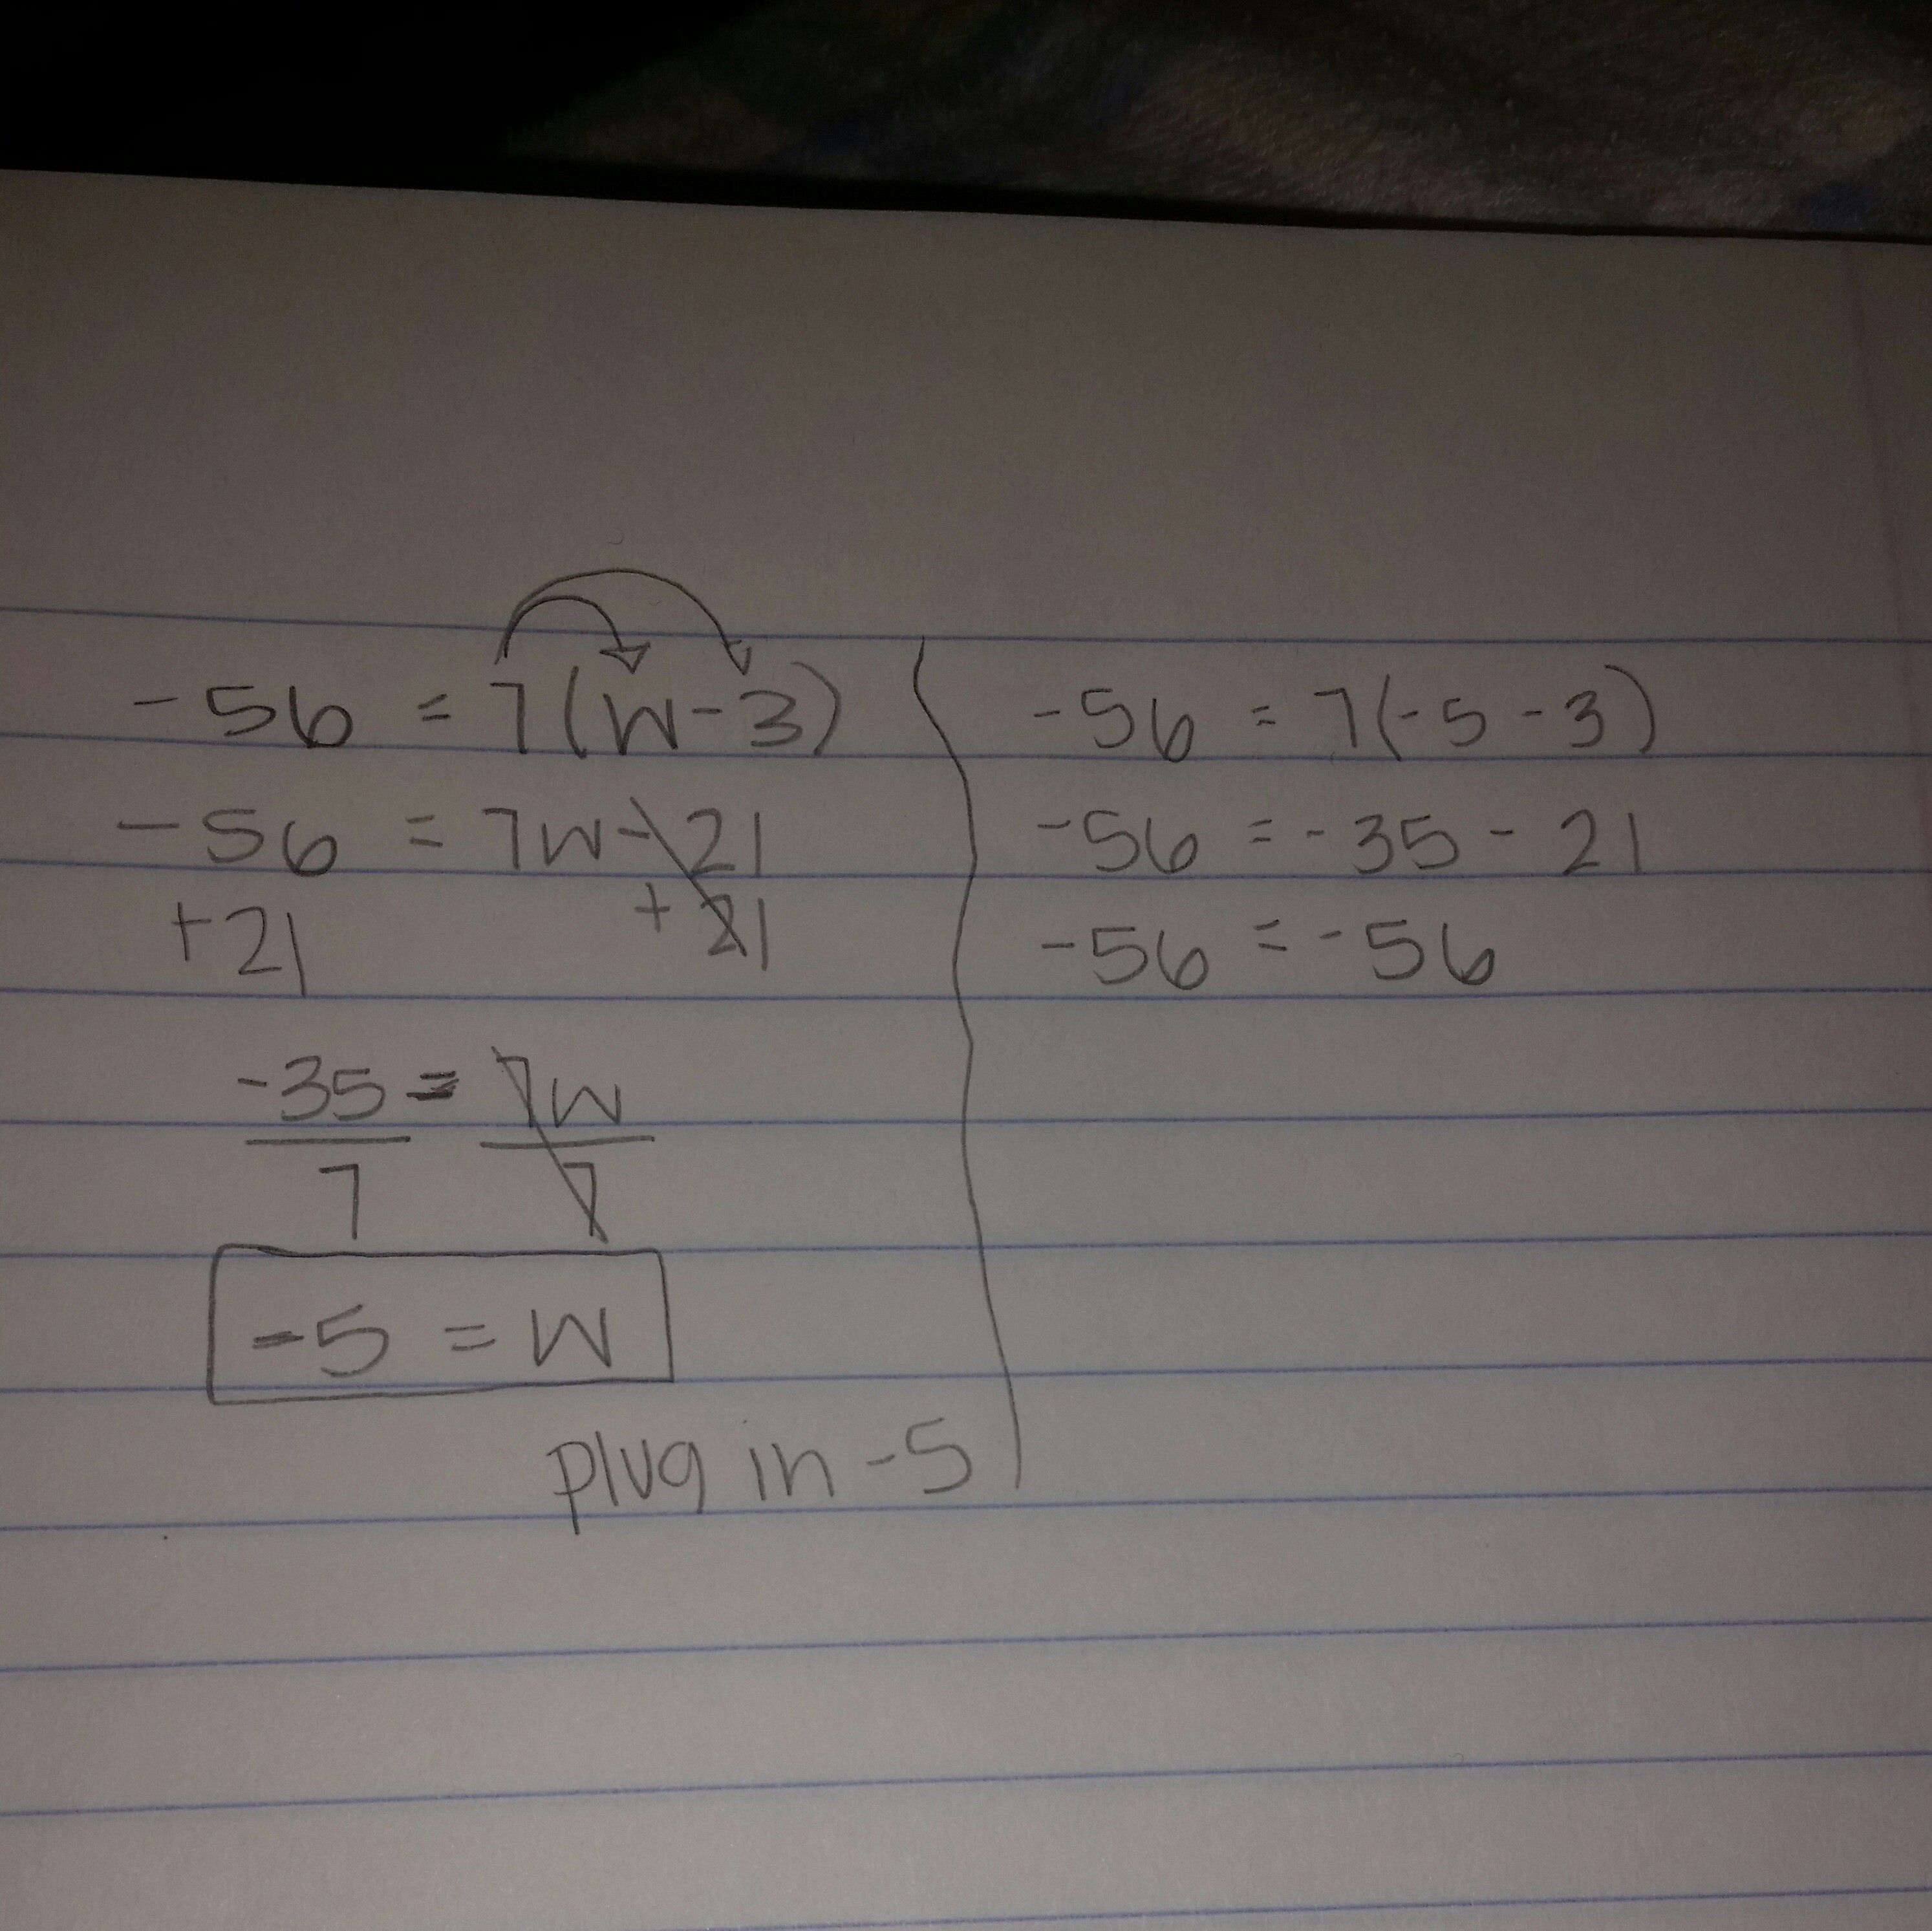 -56 = 7(w-3)
-56 = 7w-21
+21 +21
-35 = 7w
7 7
-5 = w
plug in -5
-56 = 7(-5-3)
-56 = -35 - 21
-56 = -56